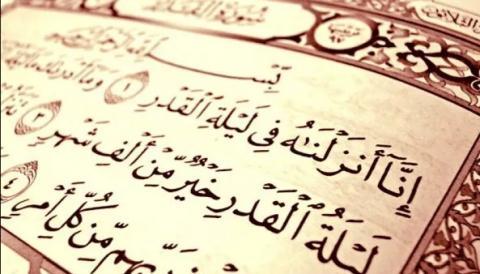 سُورَةُ القَدْرِ
بِسْمِ ٱللَّهِ ٱلرَّحْمَٰنِ ٱلرَّحِيمِ
إِنَّآ أَنزَلْنَٰهُ فِى لَيْلَةِ ٱلْقَدْرِ ١ وَمَآ أَدْرَىٰكَ مَا
لَيْلَةُ ٱلْقَدْرِ خَيْرٌ مِّنْ أَلْفِ شَهْرٍ ٣
رَبِّهِم مِّن كُلِّ أَمْرٍ ٤